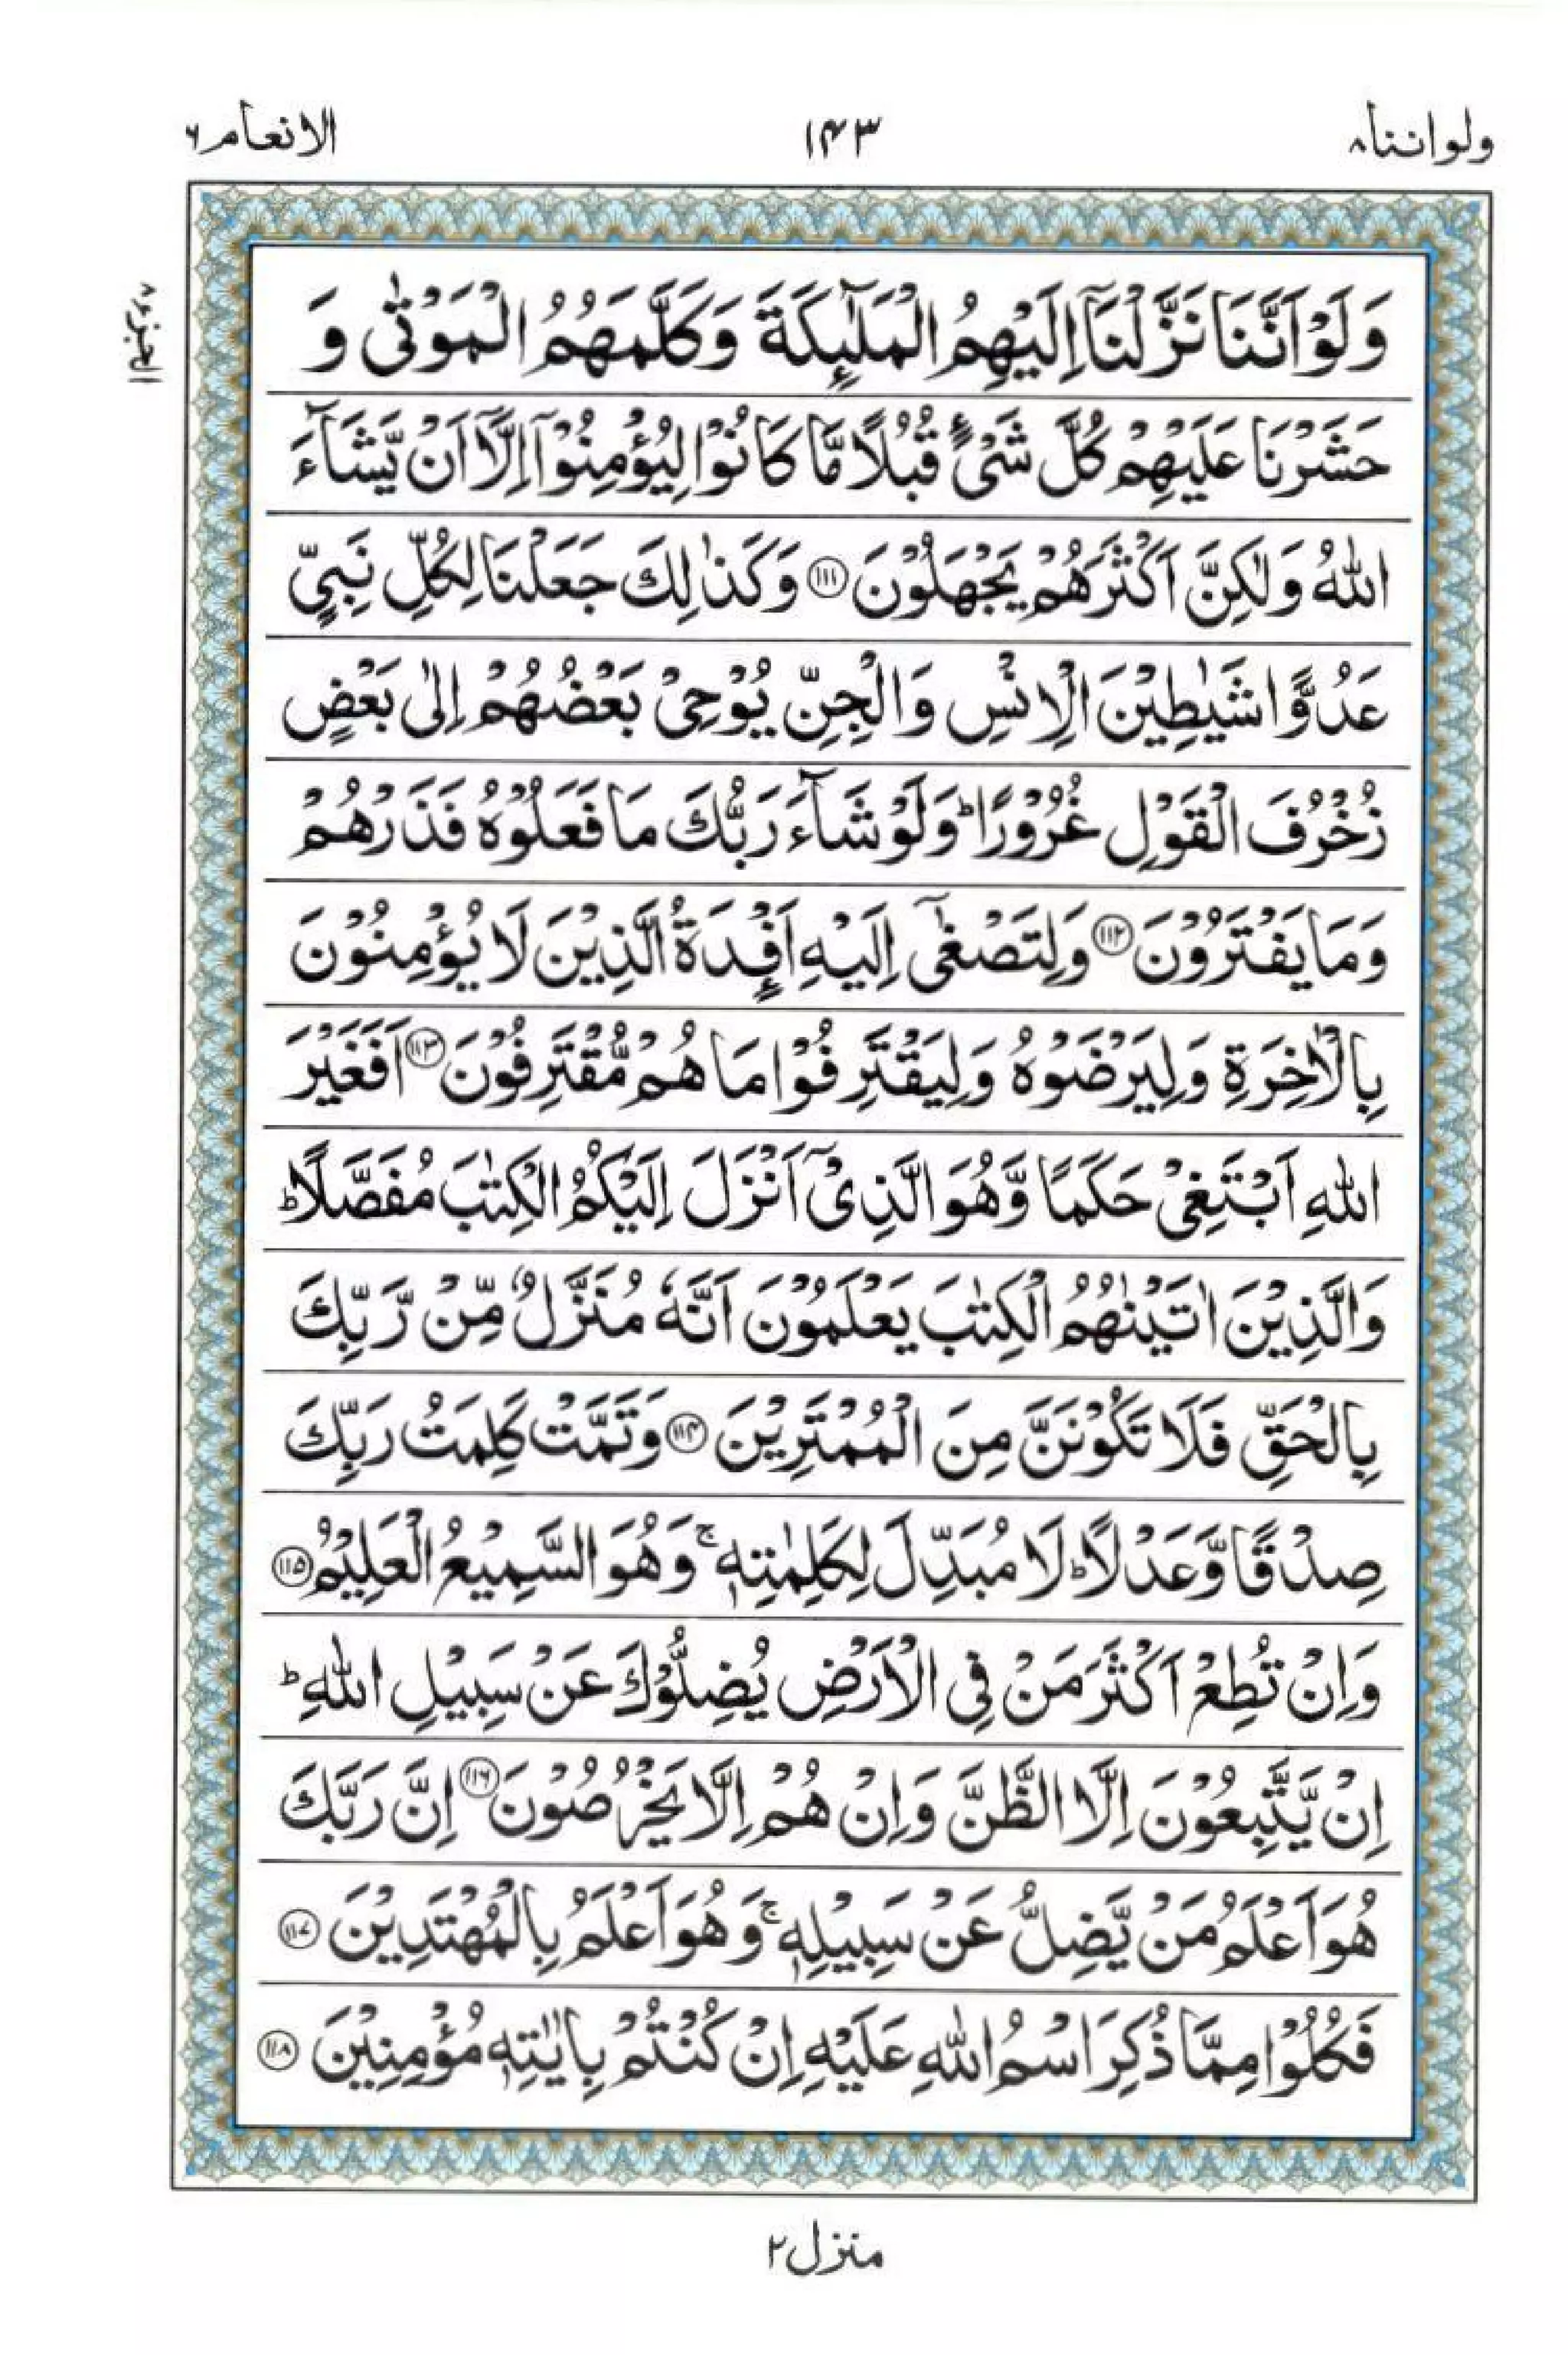 ولواننا۸
۱۴۳
الانعام۶
الجزء۸
وَلَوْ اَنَّنَا نَزَّلْنَاۤ اِلَيْهِمُ الْمَلٰٓئِكَةَ وَكَلَّمَهُمُ الْمَوْتٰى وَ
حَشَرْنَا عَلَيْهِمْ كُلَّ شَىْءٍ قُبُلًا مَّا كَانُوْا لِيُؤْمِنُوْۤا اِلَّاۤ اَنْ يَّشَآءَ
اللّٰهُ وَلٰكِنَّ اَكْثَرَهُمْ يَجْهَلُوْنَ ۝۱۱۱ وَكَذٰلِكَ جَعَلْنَا لِكُلِّ نَبِىٍّ
عَدُوًّا شَيٰطِيْنَ الْاِنْسِ وَالْجِنِّ يُوْحِىْ بَعْضُهُمْ اِلٰى بَعْضٍ
زُخْرُفَ الْقَوْلِ غُرُوْرًا ؕ وَلَوْ شَآءَ رَبُّكَ مَا فَعَلُوْهُ فَذَرْهُمْ
وَمَا يَفْتَرُوْنَ ۝۱۱۲ وَلِتَصْغٰٓى اِلَيْهِ اَفْـِٕدَةُ الَّذِيْنَ لَا يُؤْمِنُوْنَ
بِالْاٰخِرَةِ وَلِيَرْضَوْهُ وَلِيَقْتَرِفُوْا مَا هُمْ مُّقْتَرِفُوْنَ ۝۱۱۳ اَفَغَيْرَ
اللّٰهِ اَبْتَغِىْ حَكَمًا وَّهُوَ الَّذِىْۤ اَنْزَلَ اِلَيْكُمُ الْكِتٰبَ مُفَصَّلًا ؕ
وَالَّذِيْنَ اٰتَيْنٰهُمُ الْكِتٰبَ يَعْلَمُوْنَ اَنَّهٗ مُنَزَّلٌ مِّنْ رَّبِّكَ
بِالْحَقِّ فَلَا تَكُوْنَنَّ مِنَ الْمُمْتَرِيْنَ ۝۱۱۴ وَتَمَّتْ كَلِمَتُ رَبِّكَ
صِدْقًا وَّعَدْلًا ؕ لَا مُبَدِّلَ لِكَلِمٰتِهٖ ۚ وَهُوَ السَّمِيْعُ الْعَلِيْمُ ۝۱۱۵
وَاِنْ تُطِعْ اَكْثَرَ مَنْ فِى الْاَرْضِ يُضِلُّوْكَ عَنْ سَبِيْلِ اللّٰهِ ؕ
اِنْ يَّتَّبِعُوْنَ اِلَّا الظَّنَّ وَاِنْ هُمْ اِلَّا يَخْرُصُوْنَ ۝۱۱۶ اِنَّ رَبَّكَ
هُوَ اَعْلَمُ مَنْ يَّضِلُّ عَنْ سَبِيْلِهٖ ۚ وَهُوَ اَعْلَمُ بِالْمُهْتَدِيْنَ ۝۱۱۷
فَكُلُوْا مِمَّا ذُكِرَ اسْمُ اللّٰهِ عَلَيْهِ اِنْ كُنْتُمْ بِاٰيٰتِهٖ مُؤْمِنِيْنَ ۝۱۱۸
منزل۲